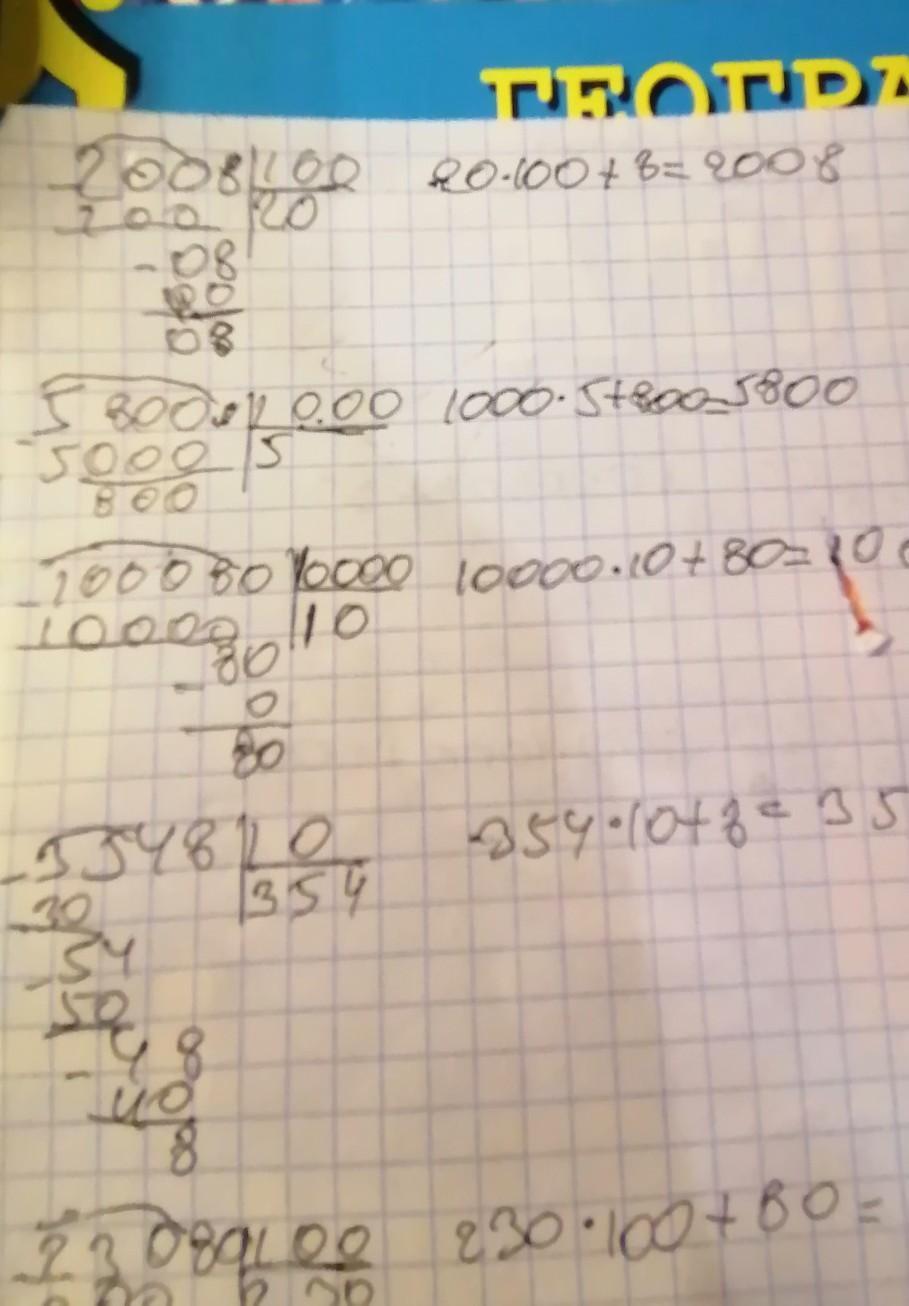 ГЕОГРА
2008 100 20·100+8=2008
200 20
-08
00
08
5800 10.00 1000·5+800=5800
-5000 5
800
-100080 10000 10000·10+80=10
10000 10
80
- 0
80
-3548 10 354·10+8=35
30 354
-54
50
-48
40
8
-23080 100 230·100+80=
230